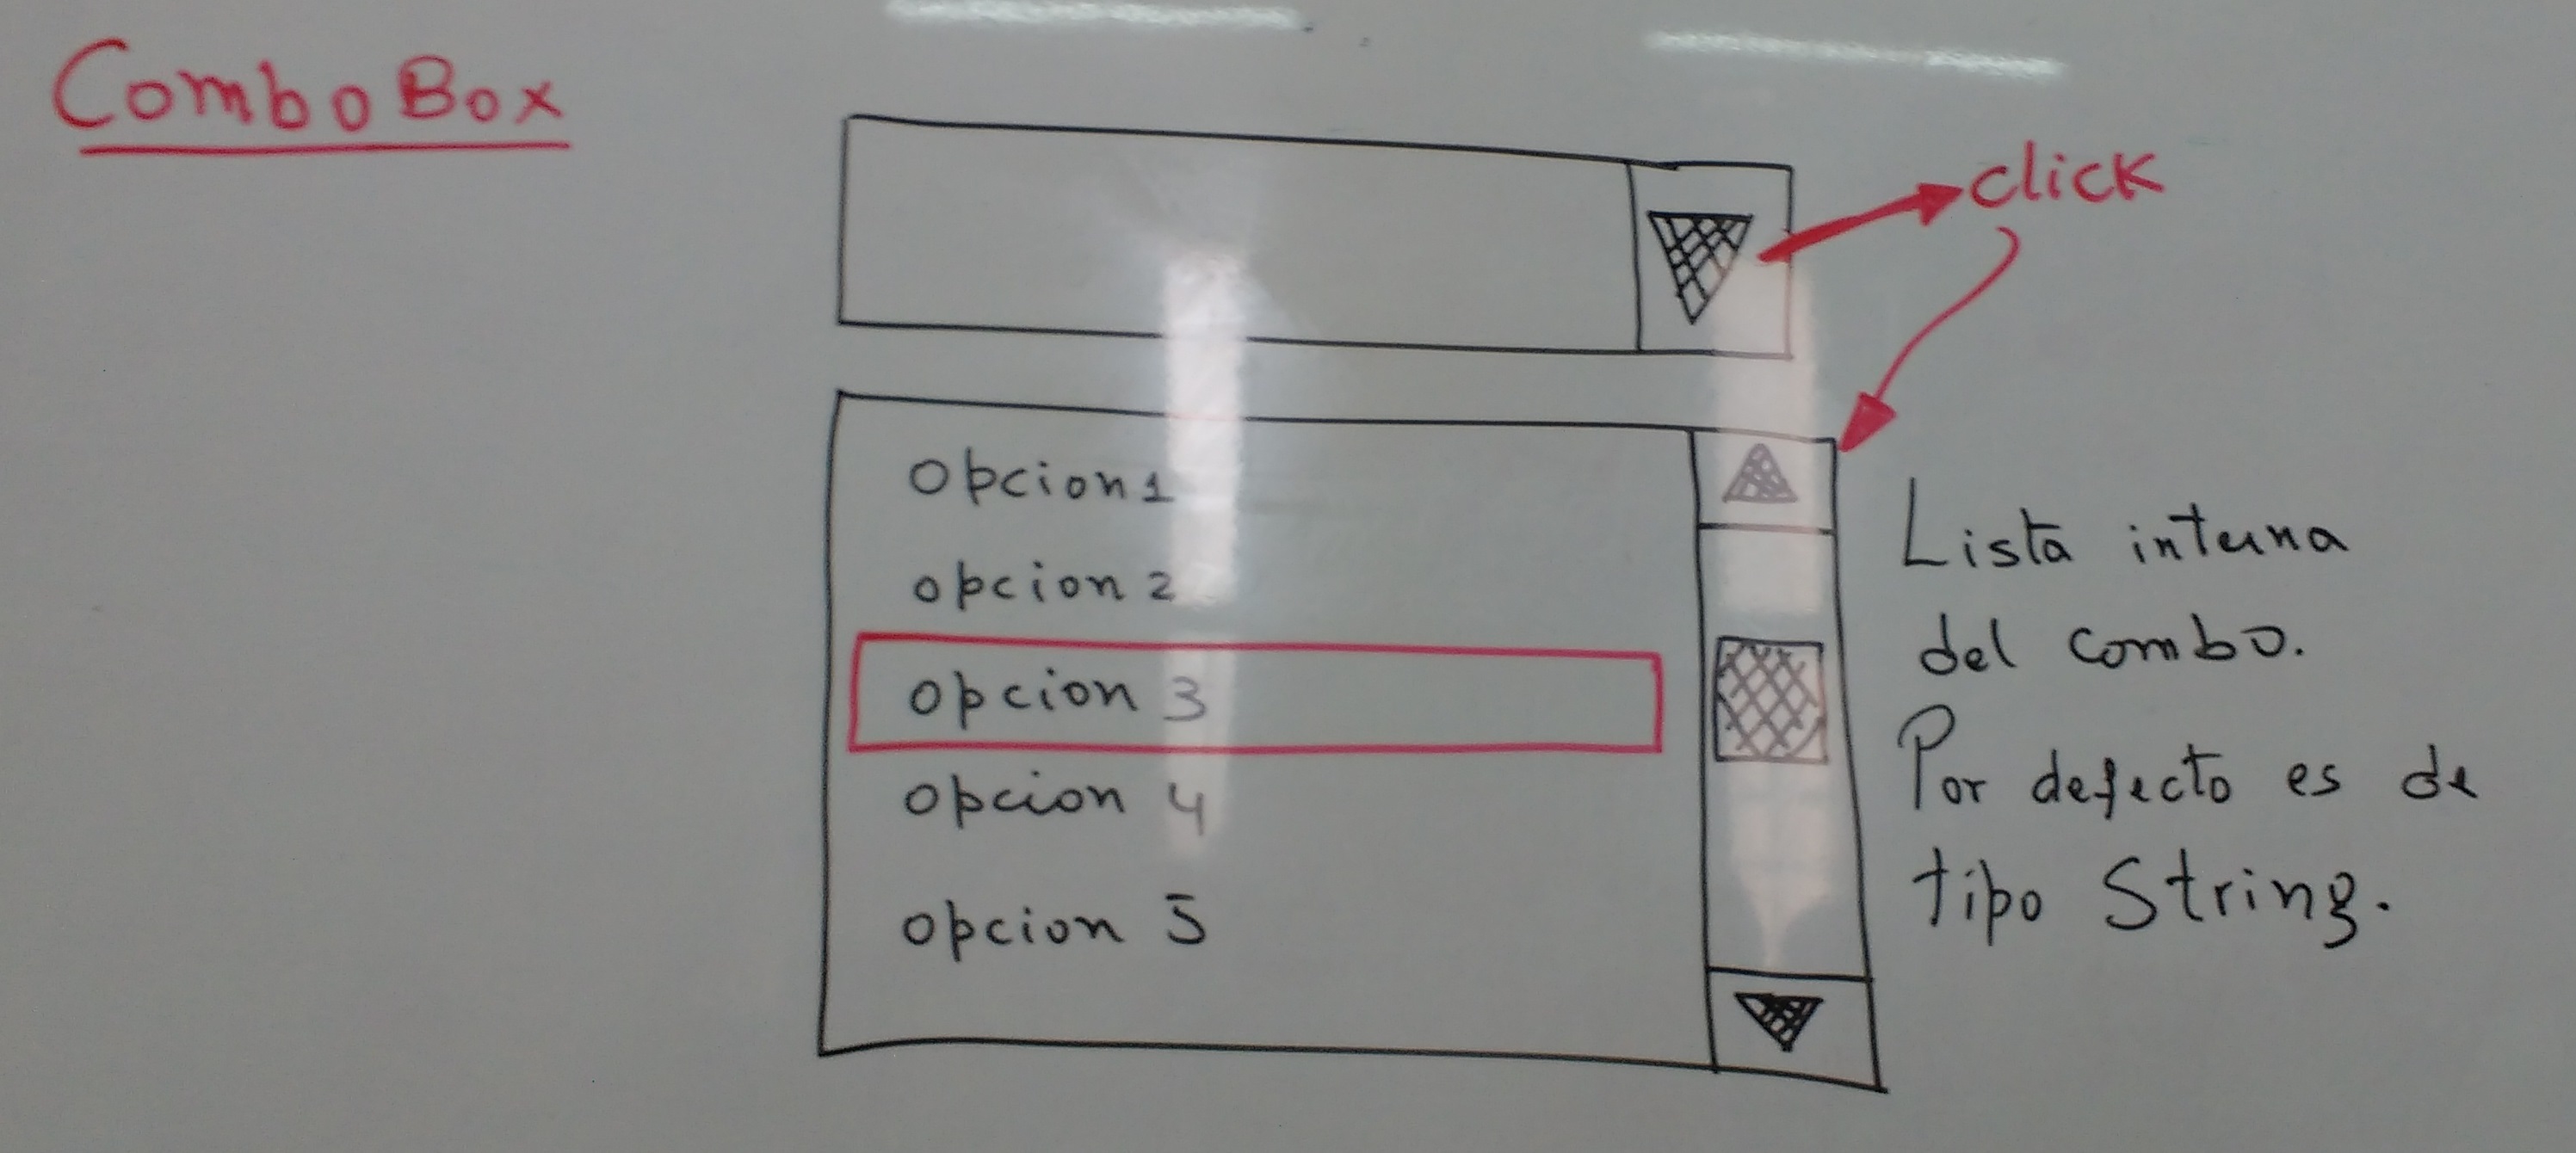 Combo Box
click
opcion 1
opcion 2
opcion 3
opcion 4
opcion 5
Lista interna
del combo.
Por defecto es de
tipo String.